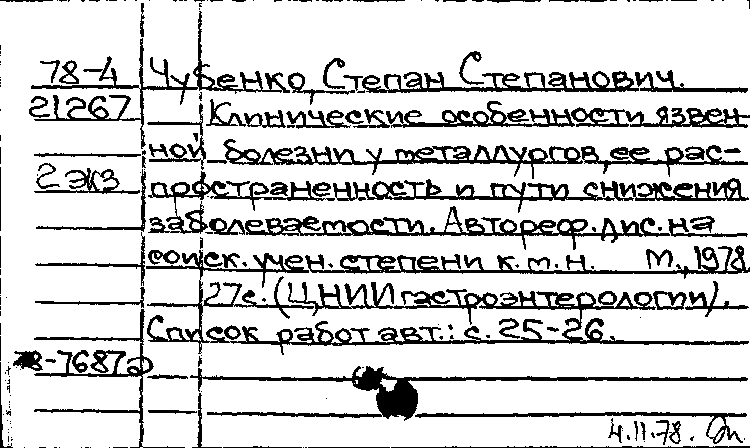 78-4 Чубенко, Степан Степанович.
21267 Клинические особенности язвен-
ной болезни у металлургов, ее рас-
2 экз пространенность и пути снижения
заболеваемости. Автореф. дис. на
соиск. учен. степени к.м.н. М., 1978
27с. (ЦНИИ гастроэнтерологии).
Список работ авт.: с. 25-26.
78-7687а
4.11.78.